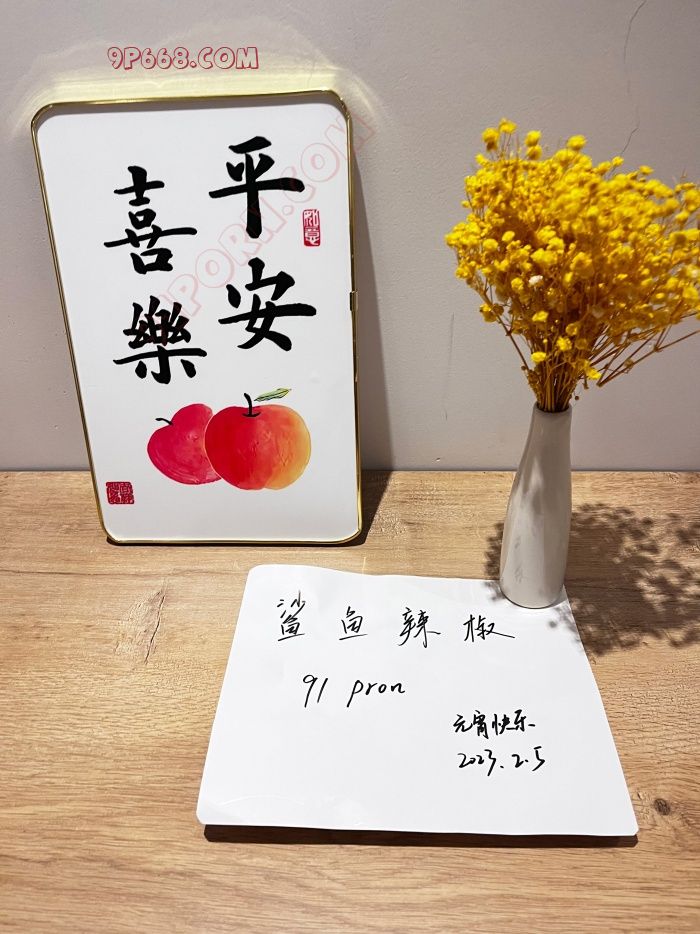 9P668.COM
平安
喜樂
如意
鲨鱼辣椒
91 pron
元宵快乐
2023.2.5